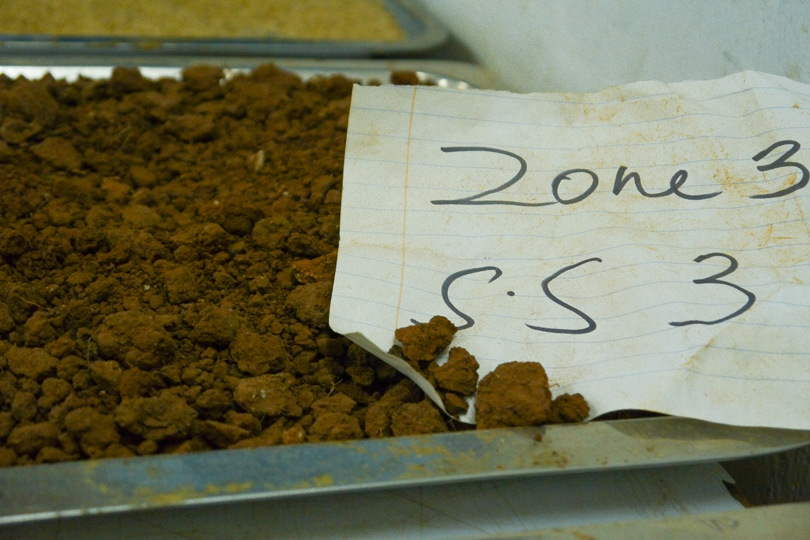 Zone 3
S.S 3